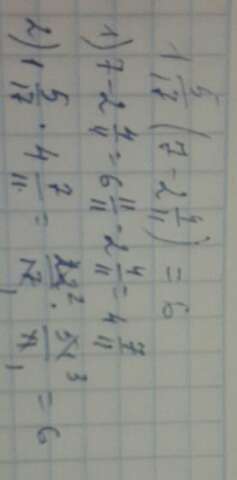 1 5/17 (7 - 2 4/11) = 6
1) 7 - 2 4/11 = 6 11/11 - 2 4/11 = 4 7/11
2) 1 5/17 · 4 7/11 = 22²/17₁ · 51³/11₁ = 6